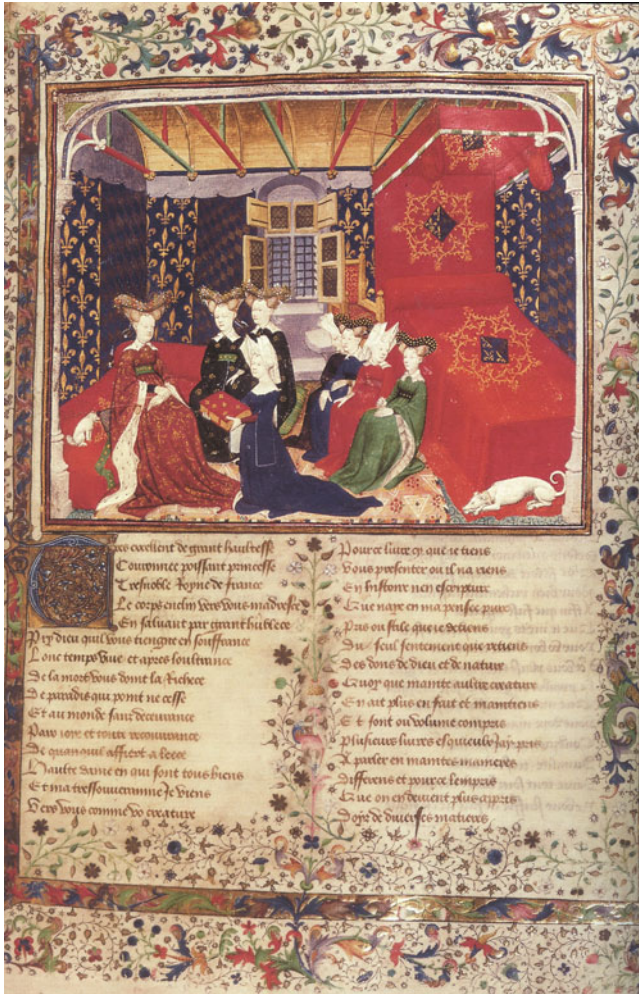 Tres excellent de grant haultesse
Couronnee poissant princesse
Tresnoble Royne de france
Le corps enclin vers vous madresce
En saluant par grant hūblece
Pry dieu quil vous tiengne en souffrance
Lonc temps vive et apres loultrance
De la mort vous doint la Richece
De paradis qui point ne cesse
Et au monde sans decevance
Paix ioye et toute recouvrance
De quanquil affiert a leece
Haulte dame en qui sont tous biens
Et ma tressouverainne Je viens
Vers vous comme vo creature
Pour ce livre cy que ie tiens
Vous presenter ou il na riens
En histoire nen escripture
Que naye en ma pensee pure
Pris ou stile que ie detiens
Du seul sentement que retiens
Des dons de dieu et de nature
Quoy que mainte aultre creature
En ait plus en fait et maintiens
Et sont ou volume compris
Plusieurs livres esquieulx Jay pris
A parler en maintes manieres
Differens et pour ce lempris
Que on en devient plus appris
Doyr de diverses matieres